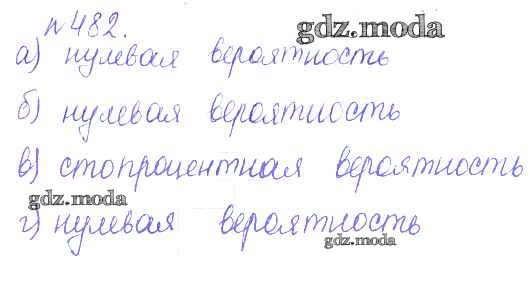 №482.
gdz.moda
а) нулевая вероятность
б) нулевая вероятность
в) стопроцентная вероятность
gdz.moda
г) нулевая вероятность
gdz.moda